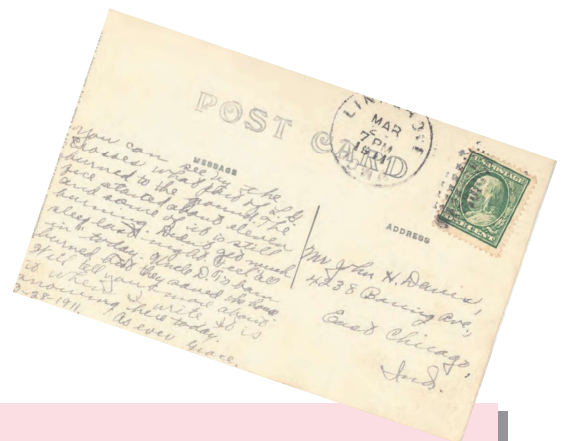 POST CARD
MESSAGE
You can see by the
crosses what part of L.C.
burned to the ground. The
fire started about eleven
and some of it is still
burning. I didn't get much
sleep last night. Feel as
today. Uncle D. T's barn
burned but they saved the house.
Will tell you more about
it when I write. It is
snowing here today.
3-28-1911. As ever Grace.
MAR
7 PM
1911
ADDRESS
Mr. John H. Davis,
4238 Baring Ave,
East Chicago,
Ind.
U.S. POSTAGE